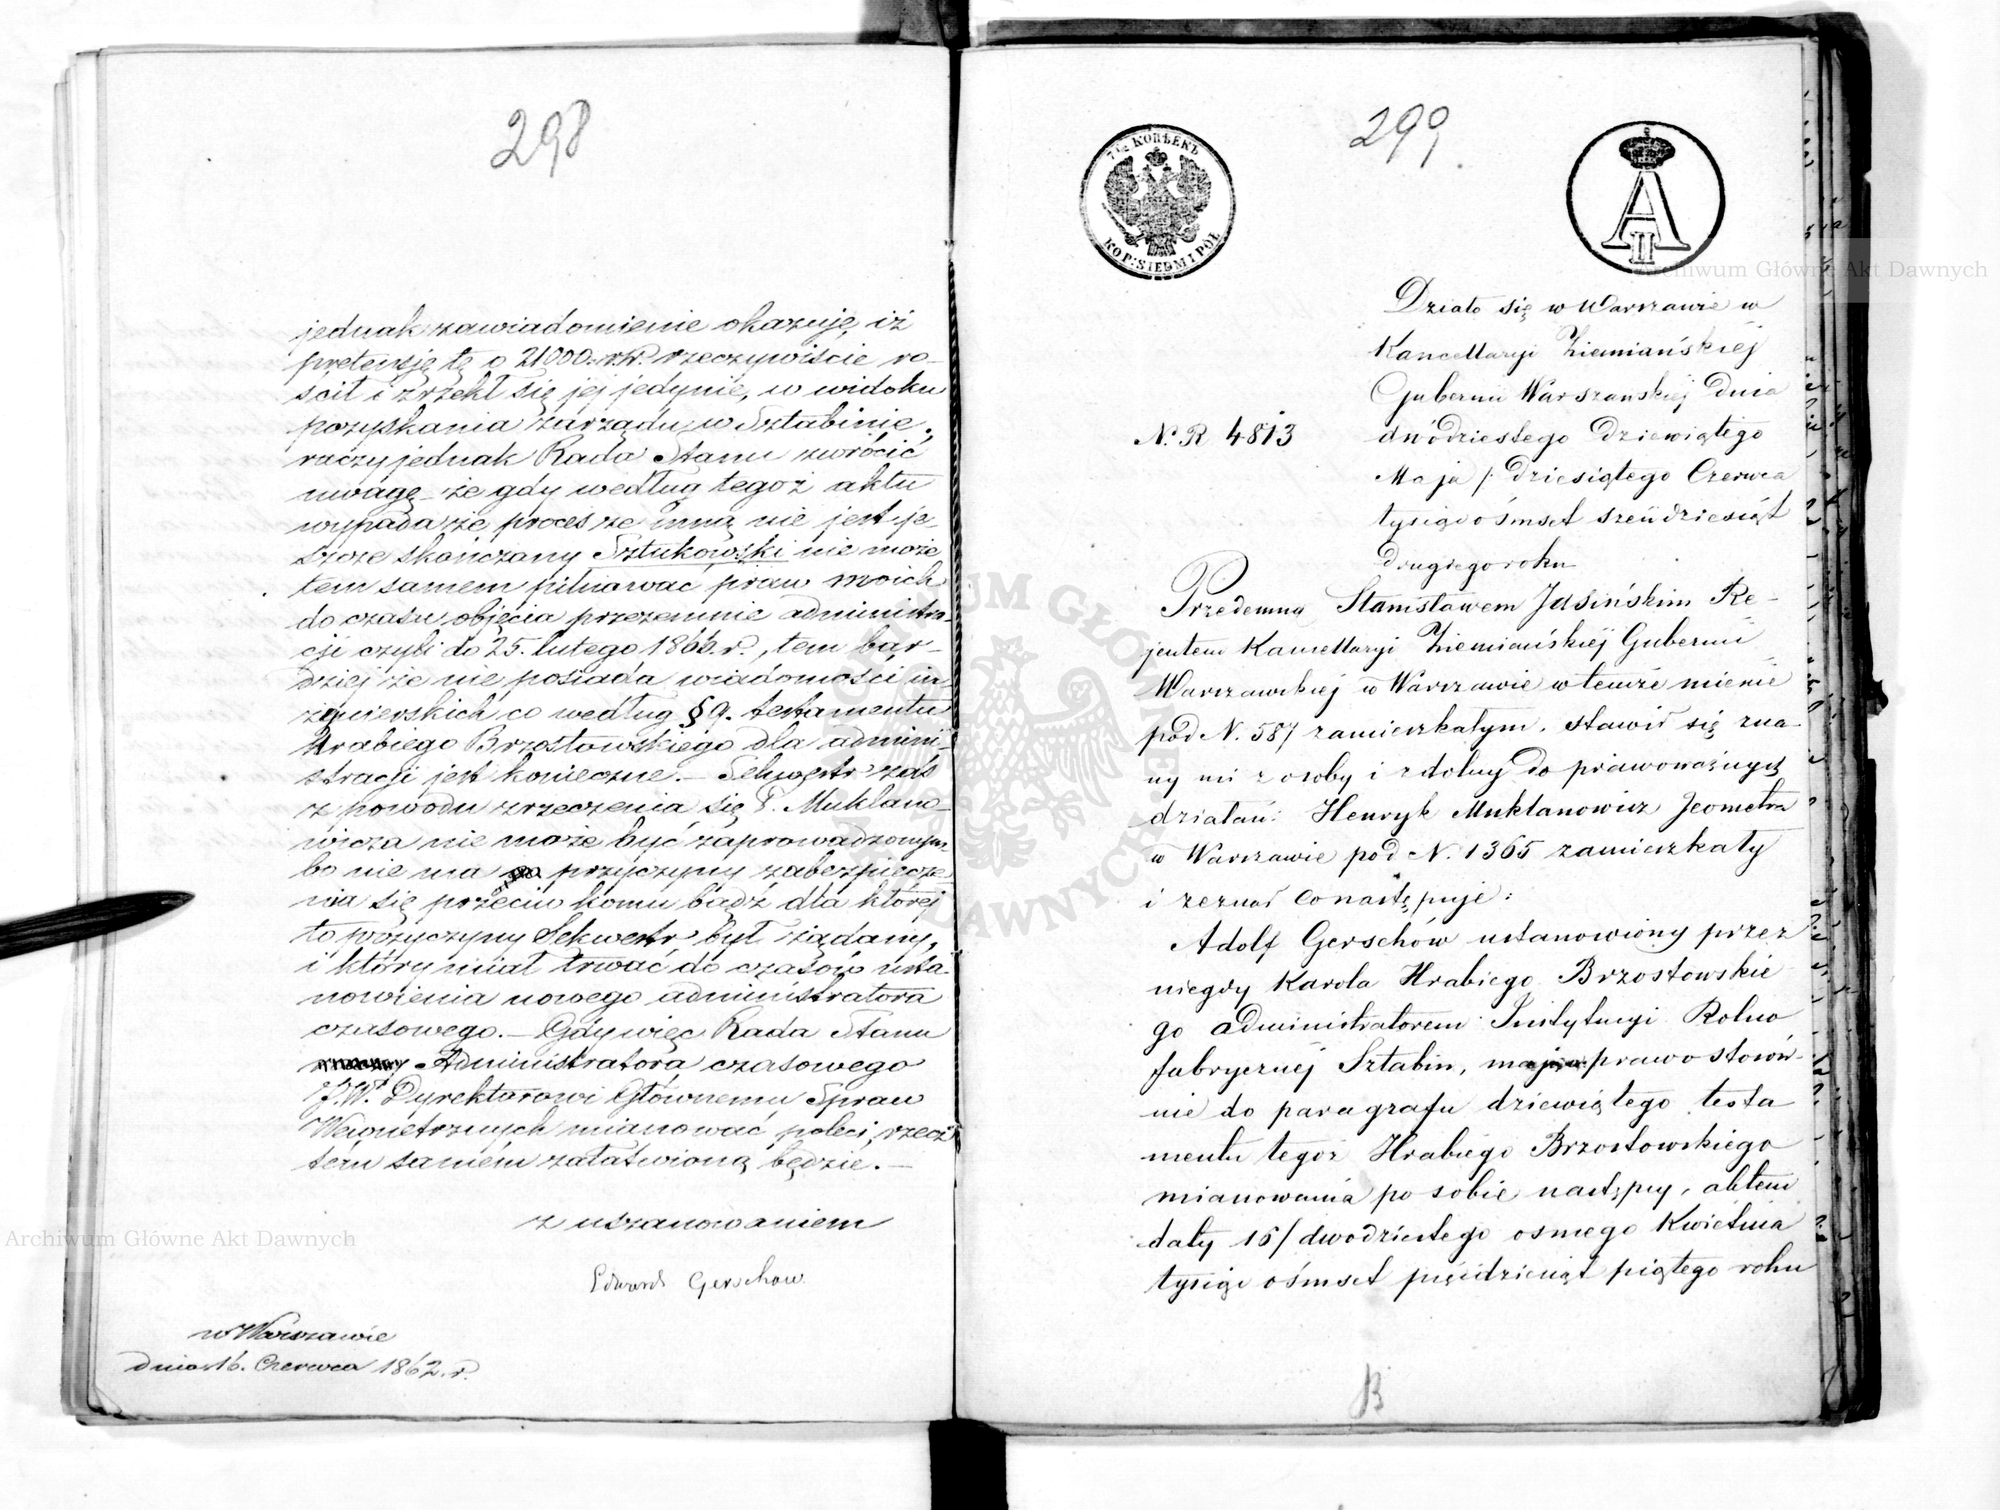 298
jednak zawiadomienie okazuję, iż
pretensję tę o 21000. r.sr. rzeczywiście ro-
ścił i zrzekł się jej jedynie, w widoku
pozyskania zarządu w Sztabinie.
raczy jednak Rada Stanu zwrócić
uwagę że gdy według tegoż aktu
wypada że proces ze mną nie jest je-
szcze skończony Sztukowski nie może
tem samem pilnować praw moich
do czasu objęcia przezemnie administra-
cji czyli do 25. lutego 1866. r., tem bar-
dziej że nie posiada wiadomości in-
żynierskich co według § 9. testamentu
Hrabiego Brzostowskiego dla admini-
stracji jest konieczne. — Sekwestr zaś
z powodu zrzeczenia się P. Muklano-
wicza nie może być zaprowadzonym
bo nie ma przyczyny zabezpiecze-
nia się przeciw komu bądź dla której
to przyczyny Sekwestr był żądany,
i który miał trwać do czasów usta-
nowienia nowego administratora
czasowego. — Gdy więc Rada Stanu
Administratora czasowego
J.W. Dyrektorowi Głównemu Spraw
Wewnętrznych mianować poleci, rzecz
tém samém załatwioną będzie. —
z uszanowaniem
Edward Gerschow
w Warszawie
dnia 16. Czerwca 1862. r.
299
7½ КОПѢЕКЪ
KOP: SIEDM I PÓŁ
A
II
Działo się w Warszawie w
Kancellaryi Ziemiańskiej
Gubernii Warszawskiej dnia
dwódziestego dziewiątego
Maja / dziesiątego Czerwca
tysiąc ośmset sześćdziesiąt
drugiego roku
N. R 4813
Przedemną Stanisławem Jasińskim Re-
jentem Kancellaryi Ziemiańskiéj Gubernii
Warszawskiej w Warszawie w temże mieście
pod N. 587 zamieszkałym, stawił się zna-
ny mi z osoby i zdolny do prawoważnych
działań: Henryk Muklanowicz Jeometra
w Warszawie pod N. 1365 zamieszkały
i zeznał co następuje:
Adolf Gerschów ustanowiony przez
niegdy Karola Hrabiego Brzostowskie
go administratorem Instytucyi Rolno
fabrycznéj Sztabin, mając prawo stosów-
nie do paragrafu dziewiątego testa
mentu tegoż Hrabiego Brzostowskiego
mianowania po sobie następcy, aktem
daty 16/ dwodziestego osmego Kwietnia
tysiąc ośmset pięćdziesiąt piątego roku
B
Archiwum Główne Akt Dawnych
Archiwum Główne Akt Dawnych